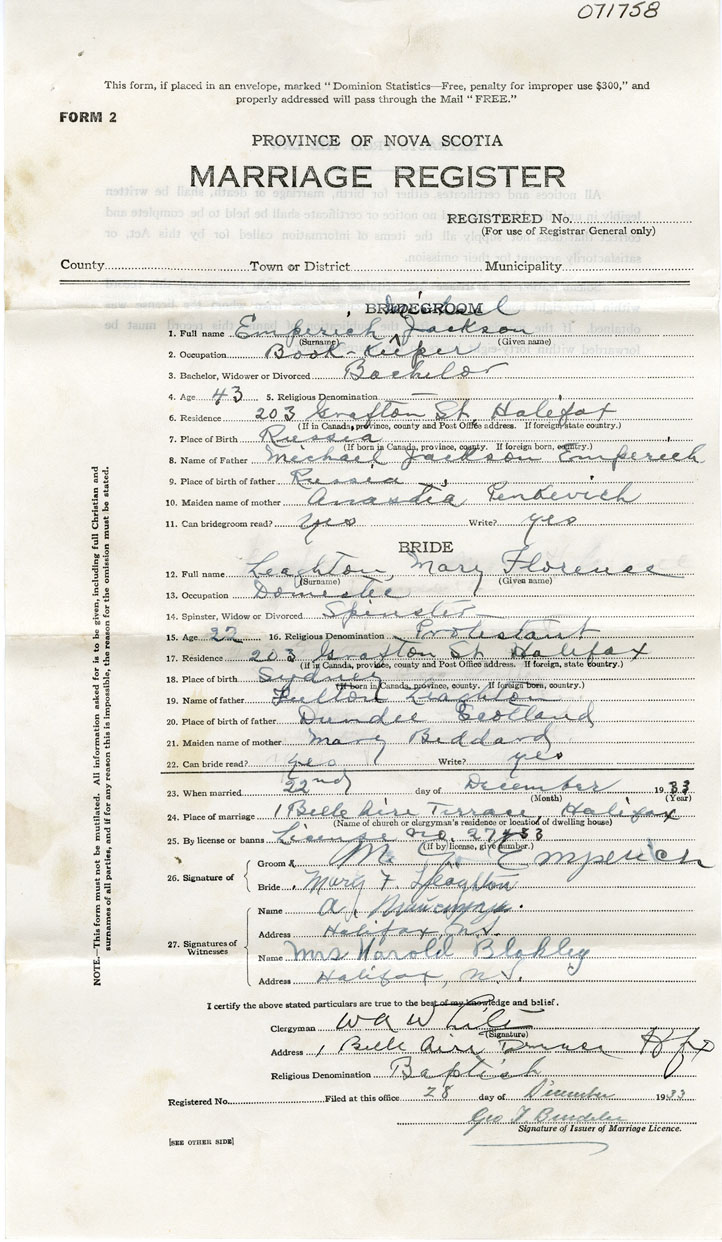 071758
This form, if placed in an envelope, marked "Dominion Statistics—Free, penalty for improper use $300," and
properly addressed will pass through the Mail "FREE."
FORM 2
PROVINCE OF NOVA SCOTIA
MARRIAGE REGISTER
REGISTERED No.
(For use of Registrar General only)
County Town or District Municipality
BRIDEGROOM
Michael
1. Full name Emperich Jackson
(Surname) (Given name)
2. Occupation Book-Keeper
3. Bachelor, Widower or Divorced Bachelor
4. Age 43 5. Religious Denomination
6. Residence 203 Grafton St, Halifax
(If in Canada, province, county and Post Office address. If foreign, state country.)
7. Place of Birth Russia
(If born in Canada, province, county. If foreign born, country.)
8. Name of Father Michael Jackson Emperich
9. Place of birth of father Russia
10. Maiden name of mother Penkevich
11. Can bridegroom read? yes Write? yes
BRIDE
12. Full name Leighton Mary Florence
(Surname) (Given name)
13. Occupation Domestic
14. Spinster, Widow or Divorced Spinster
15. Age 22 16. Religious Denomination Protestant
17. Residence 203 Grafton St Halifax
(If in Canada, province, county and Post Office address. If foreign, state country.)
18. Place of birth Sydney
(If born in Canada, province, county. If foreign born, country.)
19. Name of father Fulton Leighton
20. Place of birth of father Dundee Scotland
21. Maiden name of mother Mary Beddard
22. Can bride read? yes Write? yes
23. When married 22nd day of December 1933
(Month) (Year)
24. Place of marriage 1 Belle Aire Terrace, Halifax
(Name of church or clergyman's residence or location of dwelling house)
25. By license or banns License no. 27453
(If by license, give number.)
26. Signature of
Groom M. Emperich
Bride Mary F. Leighton
27. Signatures of Witnesses
Name A.
Address Halifax, N.S.
Name Mrs Harold Blakley
Address Halifax, N.S.
I certify the above stated particulars are true to the best of my knowledge and belief.
Clergyman W A White
(Signature)
Address 1 Belle Aire Terrace Hfx
Religious Denomination Baptist
Registered No. Filed at this office 28 day of December 1933
Geo
Signature of Issuer of Marriage Licence.
[SEE OTHER SIDE]
NOTE.—This form must not be mutilated. All information asked for is to be given, including full Christian and
surnames of all parties, and if for any reason this is impossible, the reason for the omission must be stated.